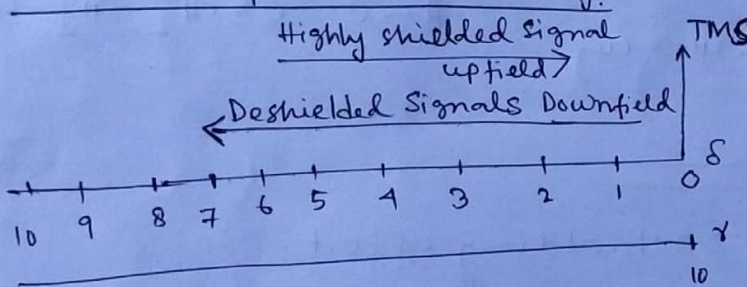 Highly shielded signal TMS
upfield
Deshielded Signals Downfield
δ
10 9 8 7 6 5 4 3 2 1 0
γ
10